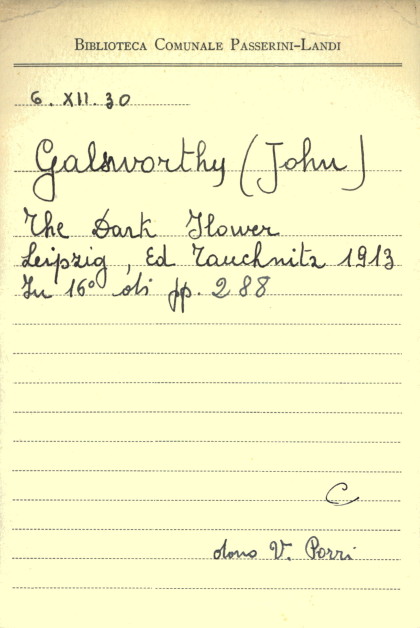 BIBLIOTECA COMUNALE PASSERINI-LANDI
6. XII. 30
Galsworthy (John)
The Dark Flower
Leipzig, Ed Tauchnitz 1913
In 16° di pp. 288
C
dono V. Porri